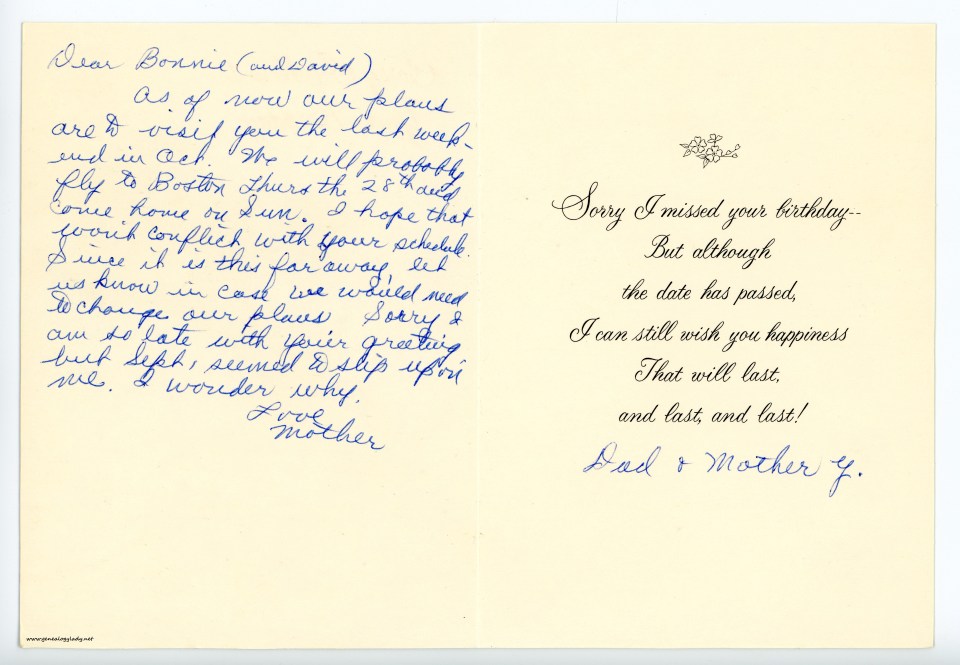 Dear Bonnie (and David)
As of now our plans
are to visit you the last week-
end in Oct. We will probably
fly to Boston Thurs the 28th and
come home on Sun. I hope that
won't conflict with your schedule.
Since it is this far away, let
us know in case we would need
to change our plans Sorry I
am so late with your greeting
but Sept, seemed to slip upon
me. I wonder why.
Love
Mother
Sorry I missed your birthday--
But although
the date has passed,
I can still wish you happiness
That will last,
and last, and last!
Dad & Mother Y.
www.genealogylady.net